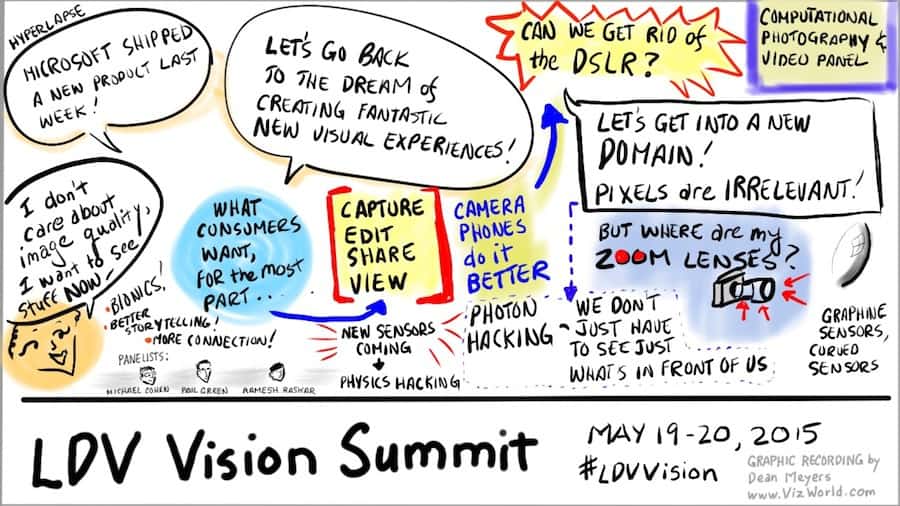 HYPERLAPSE
MICROSOFT SHIPPED
A NEW PRODUCT LAST
WEEK!
LET'S GO BACK
TO THE DREAM of
CREATING FANTASTIC
NEW VISUAL EXPERIENCES!
CAN WE GET RID of
the DSLR?
COMPUTATIONAL
PHOTOGRAPHY &
VIDEO PANEL
LET'S GET INTO A NEW
DOMAIN!
PIXELS are IRRELEVANT!
I don't
care about
image quality,
I want to see
stuff NOW-
WHAT
CONSUMERS
WANT,
FOR the MOST
PART...
CAPTURE
EDIT
SHARE
VIEW
CAMERA
PHONES
do it
BETTER
BUT WHERE are my
ZOOM LENSES?
• BIONICS!
• BETTER
STORYTELLING!
• MORE CONNECTION!
NEW SENSORS
COMING
PHYSICS HACKING
PHOTON
HACKING -
WE DON'T
JUST HAVE
TO SEE JUST
WHAT'S IN FRONT OF US
GRAPHINE
SENSORS,
CURVED
SENSORS
PANELISTS:
MICHAEL COHEN
PAUL GREEN
RAMESH RASKAR
LDV Vision Summit
MAY 19-20, 2015
#LDVVision
GRAPHIC RECORDING by
Dean Meyers
www.VizWorld.com